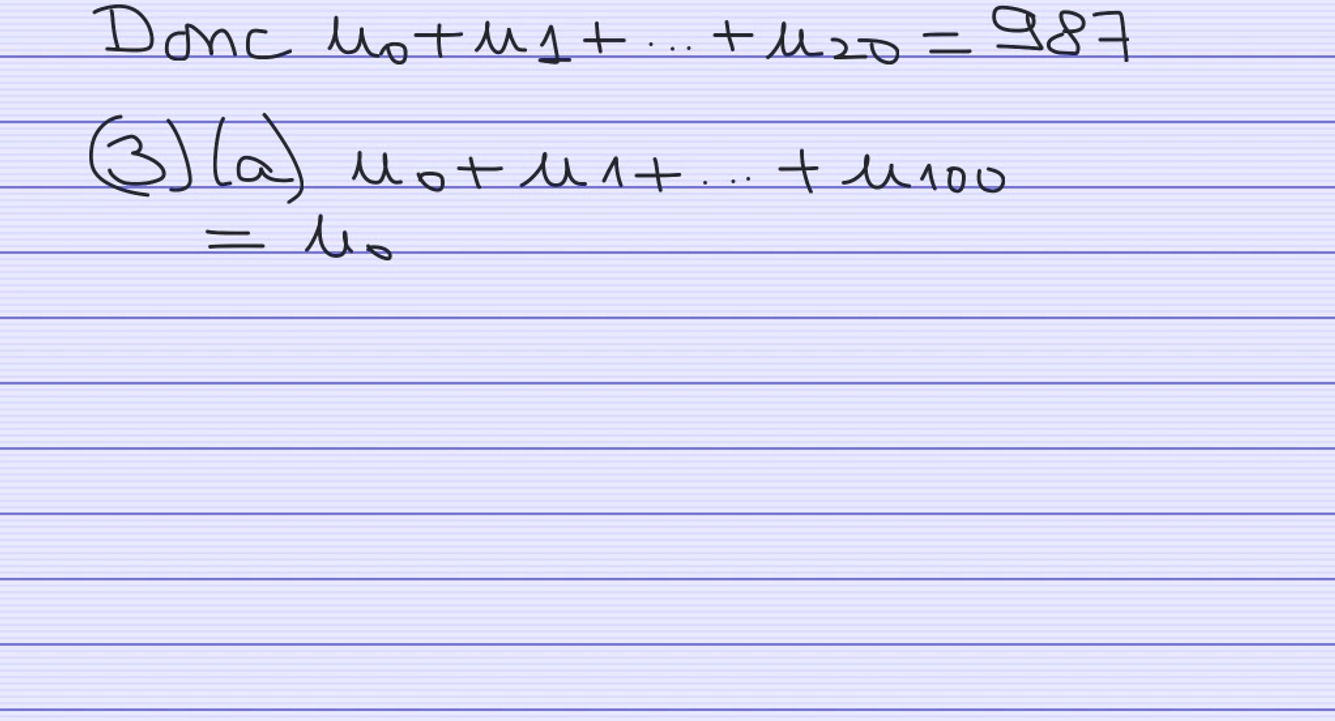 Donc u₀+u₁+...+u₂₀ = 987
③ (a) u₀+u₁+...+u₁₀₀
= u₀